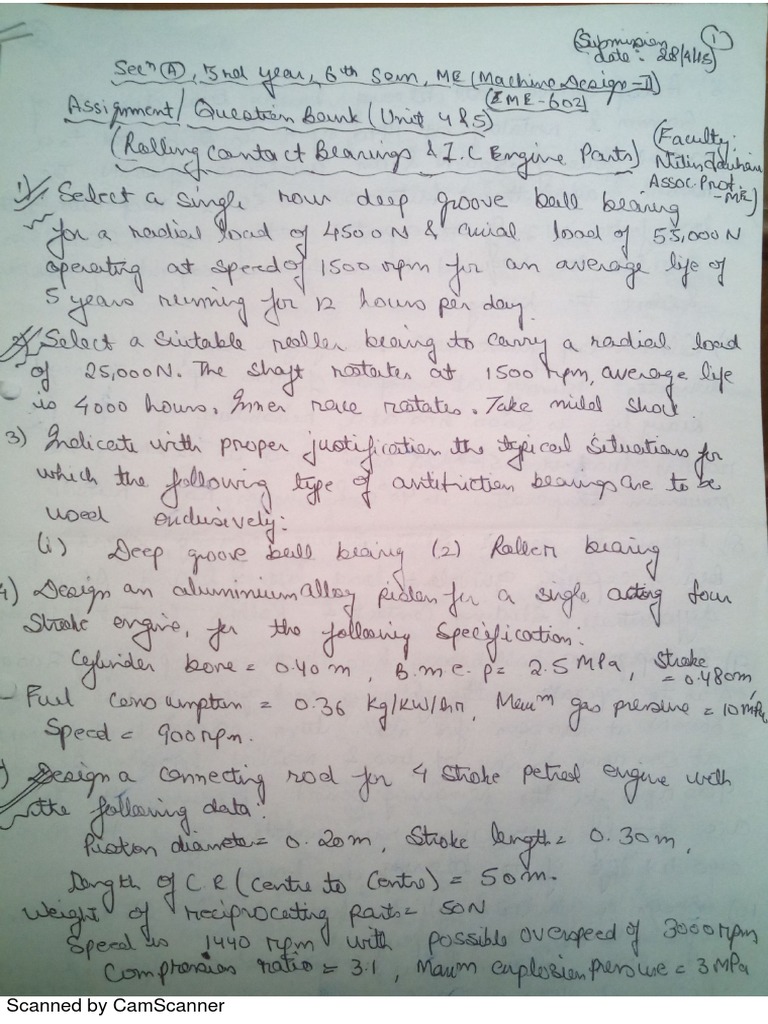 (Submission ①
date: 28/4/15)
Secⁿ Ⓐ, 3rd year, 6th Sem, ME (Machine Design-II)
(EME-602)
Assignment/Question Bank (Unit 4 & 5)
(Rolling Contact Bearings & I.C Engine Parts)
(Faculty:
Nitin
Assoc. Prof.
-ME)
1) Select a single row deep groove ball bearing
for a radial load of 4500N & axial load of 55,000N
operating at speed of 1500 rpm for an average life of
5 years running for 12 hours per day.
2) Select a suitable roller bearing to carry a radial load
of 25,000N. The shaft rotates at 1500 rpm, average life
is 4000 hours. Inner race rotates. Take mild shock.
3) Indicate with proper justification the typical situations for
which the following type of antifriction bearings are to be
used exclusively:
(i) Deep groove ball bearing (2) Roller bearing
4) Design an aluminium alloy piston for a single acting four
stroke engine, for the following specification:
Cylinder bore = 0.40 m, B.m.e.p = 2.5 MPa, Stroke
= 0.480m
Fuel consumption = 0.36 kg/kW/hr, Maxm gas pressure = 10 MPa
Speed = 900 rpm.
Design a connecting rod for 4 stroke petrol engine with
the following data:
Piston diameter = 0.20m, Stroke length = 0.30m,
Length of C.R (Centre to Centre) = 50m.
Weight of reciprocating parts = 50N
Speed is 1440 rpm with possible overspeed of 3000 rpm
Compression ratio = 3.1, Maxm explosion pressure = 3 MPa
Scanned by CamScanner